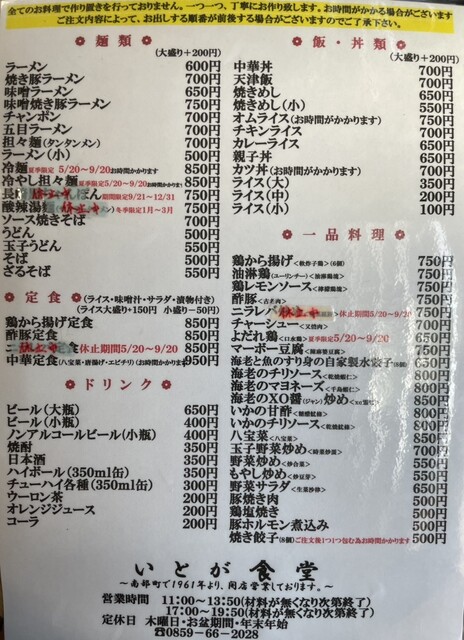 全てのお料理で作り置きを行っておりません。一つ一つ、丁寧にお作り致します。お時間がかかる場合がございます
ご注文内容によって、お出しする順番が前後する場合がございますのでご了承下さい。
麺類 (大盛り+200円)
ラーメン 600円
焼き豚ラーメン 700円
味噌ラーメン 650円
味噌焼き豚ラーメン 750円
チャンポン 700円
五目ラーメン 700円
担々麺(タンタンメン) 700円
ラーメン(小) 500円
冷麺 夏季限定 5/20~9/20お時間かかります 850円
冷やし担々麺 夏季限定5/20~9/20お時間かかります 850円
ぽん 期間限定9/21~12/31 750円
酸辣湯 休止中 冬季限定1月~3月 750円
ソース焼きそば 700円
うどん 500円
玉子うどん 550円
そば 500円
ざるそば 550円
定食 (ライス・味噌汁・サラダ・漬物付き)
(ライス大盛り+150円 小盛り-50円)
鶏から揚げ定食 850円
酢豚定食 850円
定食 休止期間5/20~9/20 850円
中華定食(八宝菜・唐揚げ・エビチリ)(お時間かかります) 950円
ドリンク
ビール(大瓶) 650円
ビール(小瓶) 400円
ノンアルコールビール(小瓶) 400円
焼酎 350円
日本酒 350円
ハイボール(350ml缶) 350円
チューハイ各種(350ml缶) 300円
ウーロン茶 200円
オレンジジュース 200円
コーラ 200円
飯・丼類 (大盛り+200円)
中華丼 700円
天津飯 700円
焼きめし 650円
焼きめし(小) 550円
オムライス(お時間がかかります) 750円
チキンライス 700円
カレーライス 650円
親子丼 650円
カツ丼(お時間がかかります) 700円
ライス(大) 350円
ライス(中) 200円
ライス(小) 100円
一品料理
鶏から揚げ<軟炸子鶏>(6個) 750円
油淋鶏(ユーリンチー)<油淋鶏塊> 750円
鶏レモンソース<檸檬鶏塊> 750円
酢豚<古老肉> 750円
ニラレバ 休止中 休止期間5/20~9/20 750円
チャーシュー<叉焼肉> 700円
よだれ鶏<口水鶏>夏季限定5/20~9/20 650円
マーボー豆腐<麻婆豆腐> 750円
海老と魚のすり身の自家製水餃子(8個) 650円
海老のチリソース<乾焼蝦仁> 800円
海老のマヨネーズ<干島蝦仁> 800円
海老のXO醤(ジャン)炒め<xo蝦仁> 800円
いかの甘酢<糖醋魷絲> 800円
いかのチリソース<乾焼魷絲> 800円
八宝菜<八宝菜> 850円
玉子野菜炒め<時菜炒蛋> 700円
野菜炒め<炒合菜> 550円
もやし炒め<炒豆芽> 550円
野菜サラダ<生菜沙律> 650円
豚焼き肉 500円
鶏塩焼き 500円
豚ホルモン煮込み 500円
焼き餃子(8個)ご注文後1つ1つ包む為お時間かかります 500円
いとが食堂
~南部町で1961年より、開店営業しております。~
営業時間 11:00~13:50(材料が無くなり次第終了)
17:00~19:50(材料が無くなり次第終了)
定休日 木曜日・お盆期間・年末年始
☎0859-66-2028